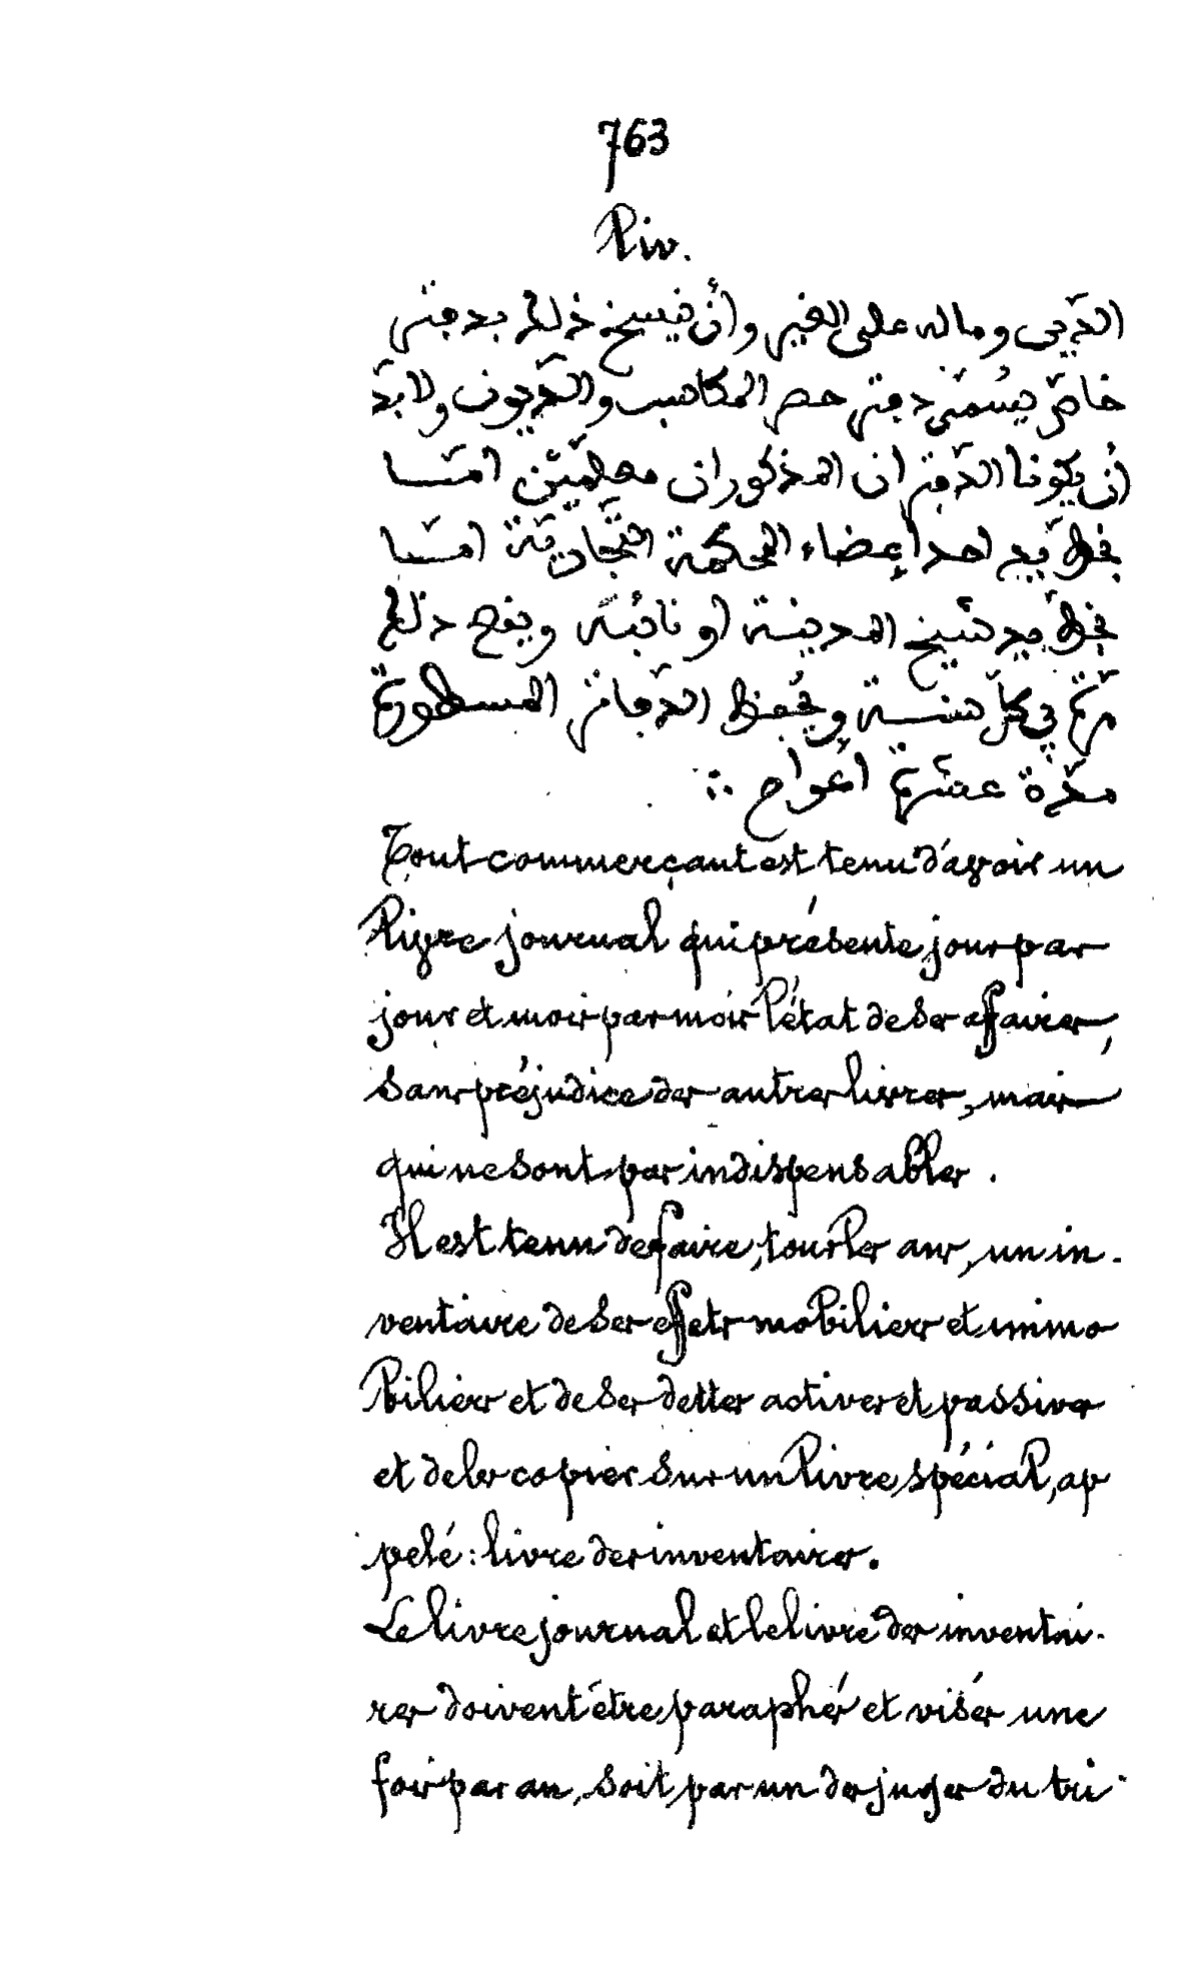 763
Liv.
الدّين وماله على الغير وأن ينسخ ذلك بدفتر
خاصّ يسُمّى دفتر حصر المكاسب والدّيون ولا بدّ
أن يكونا الدّفتران المذكوران معلّمين امّا
بخطّ يد احد أعضاء المحكمة التّجاريّة امّا
بخطّ يد شيخ المدينة او نائبه ويقع ذلك
مرّة في كلّ سنة وتُحفظ الدّفاتر المسطورة
مدّة عشرة أعوام
Tout commerçant est tenu d'avoir un
livre journal qui présente jour par
jour et mois par mois l'état de ses affaires,
sans préjudice des autres livres, mais
qui ne sont pas indispensables.
Il est tenu de faire, tous les ans, un in-
ventaire de ses effets mobiliers et immo
biliers et de ses dettes actives et passives
et de les copier sur un livre spécial, ap
pelé: livre des inventaires.
Le livre journal et le livre des inventai-
res doivent être paraphés et visés une
fois par an, soit par un des juges du tri-